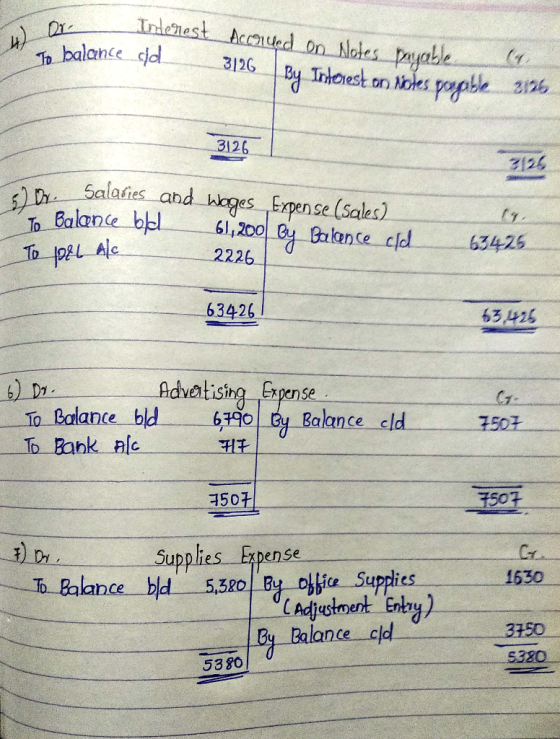 4) Dr. Interest Accrued on Notes payable Cr.
To balance c/d 3126 By Interest on Notes payable 3126
3126 3126
5) Dr. Salaries and Wages Expense (Sales) Cr.
To Balance b/d 61,200 By Balance c/d 63426
To P&L A/c 2226
63426 63,426
6) Dr. Advertising Expense. Cr.
To Balance b/d 6,790 By Balance c/d 7507
To Bank A/c 717
7507 7507
7) Dr. Supplies Expense Cr.
To Balance b/d 5,380 By Office Supplies 1630
(Adjustment Entry)
By Balance c/d 3750
5380 5380